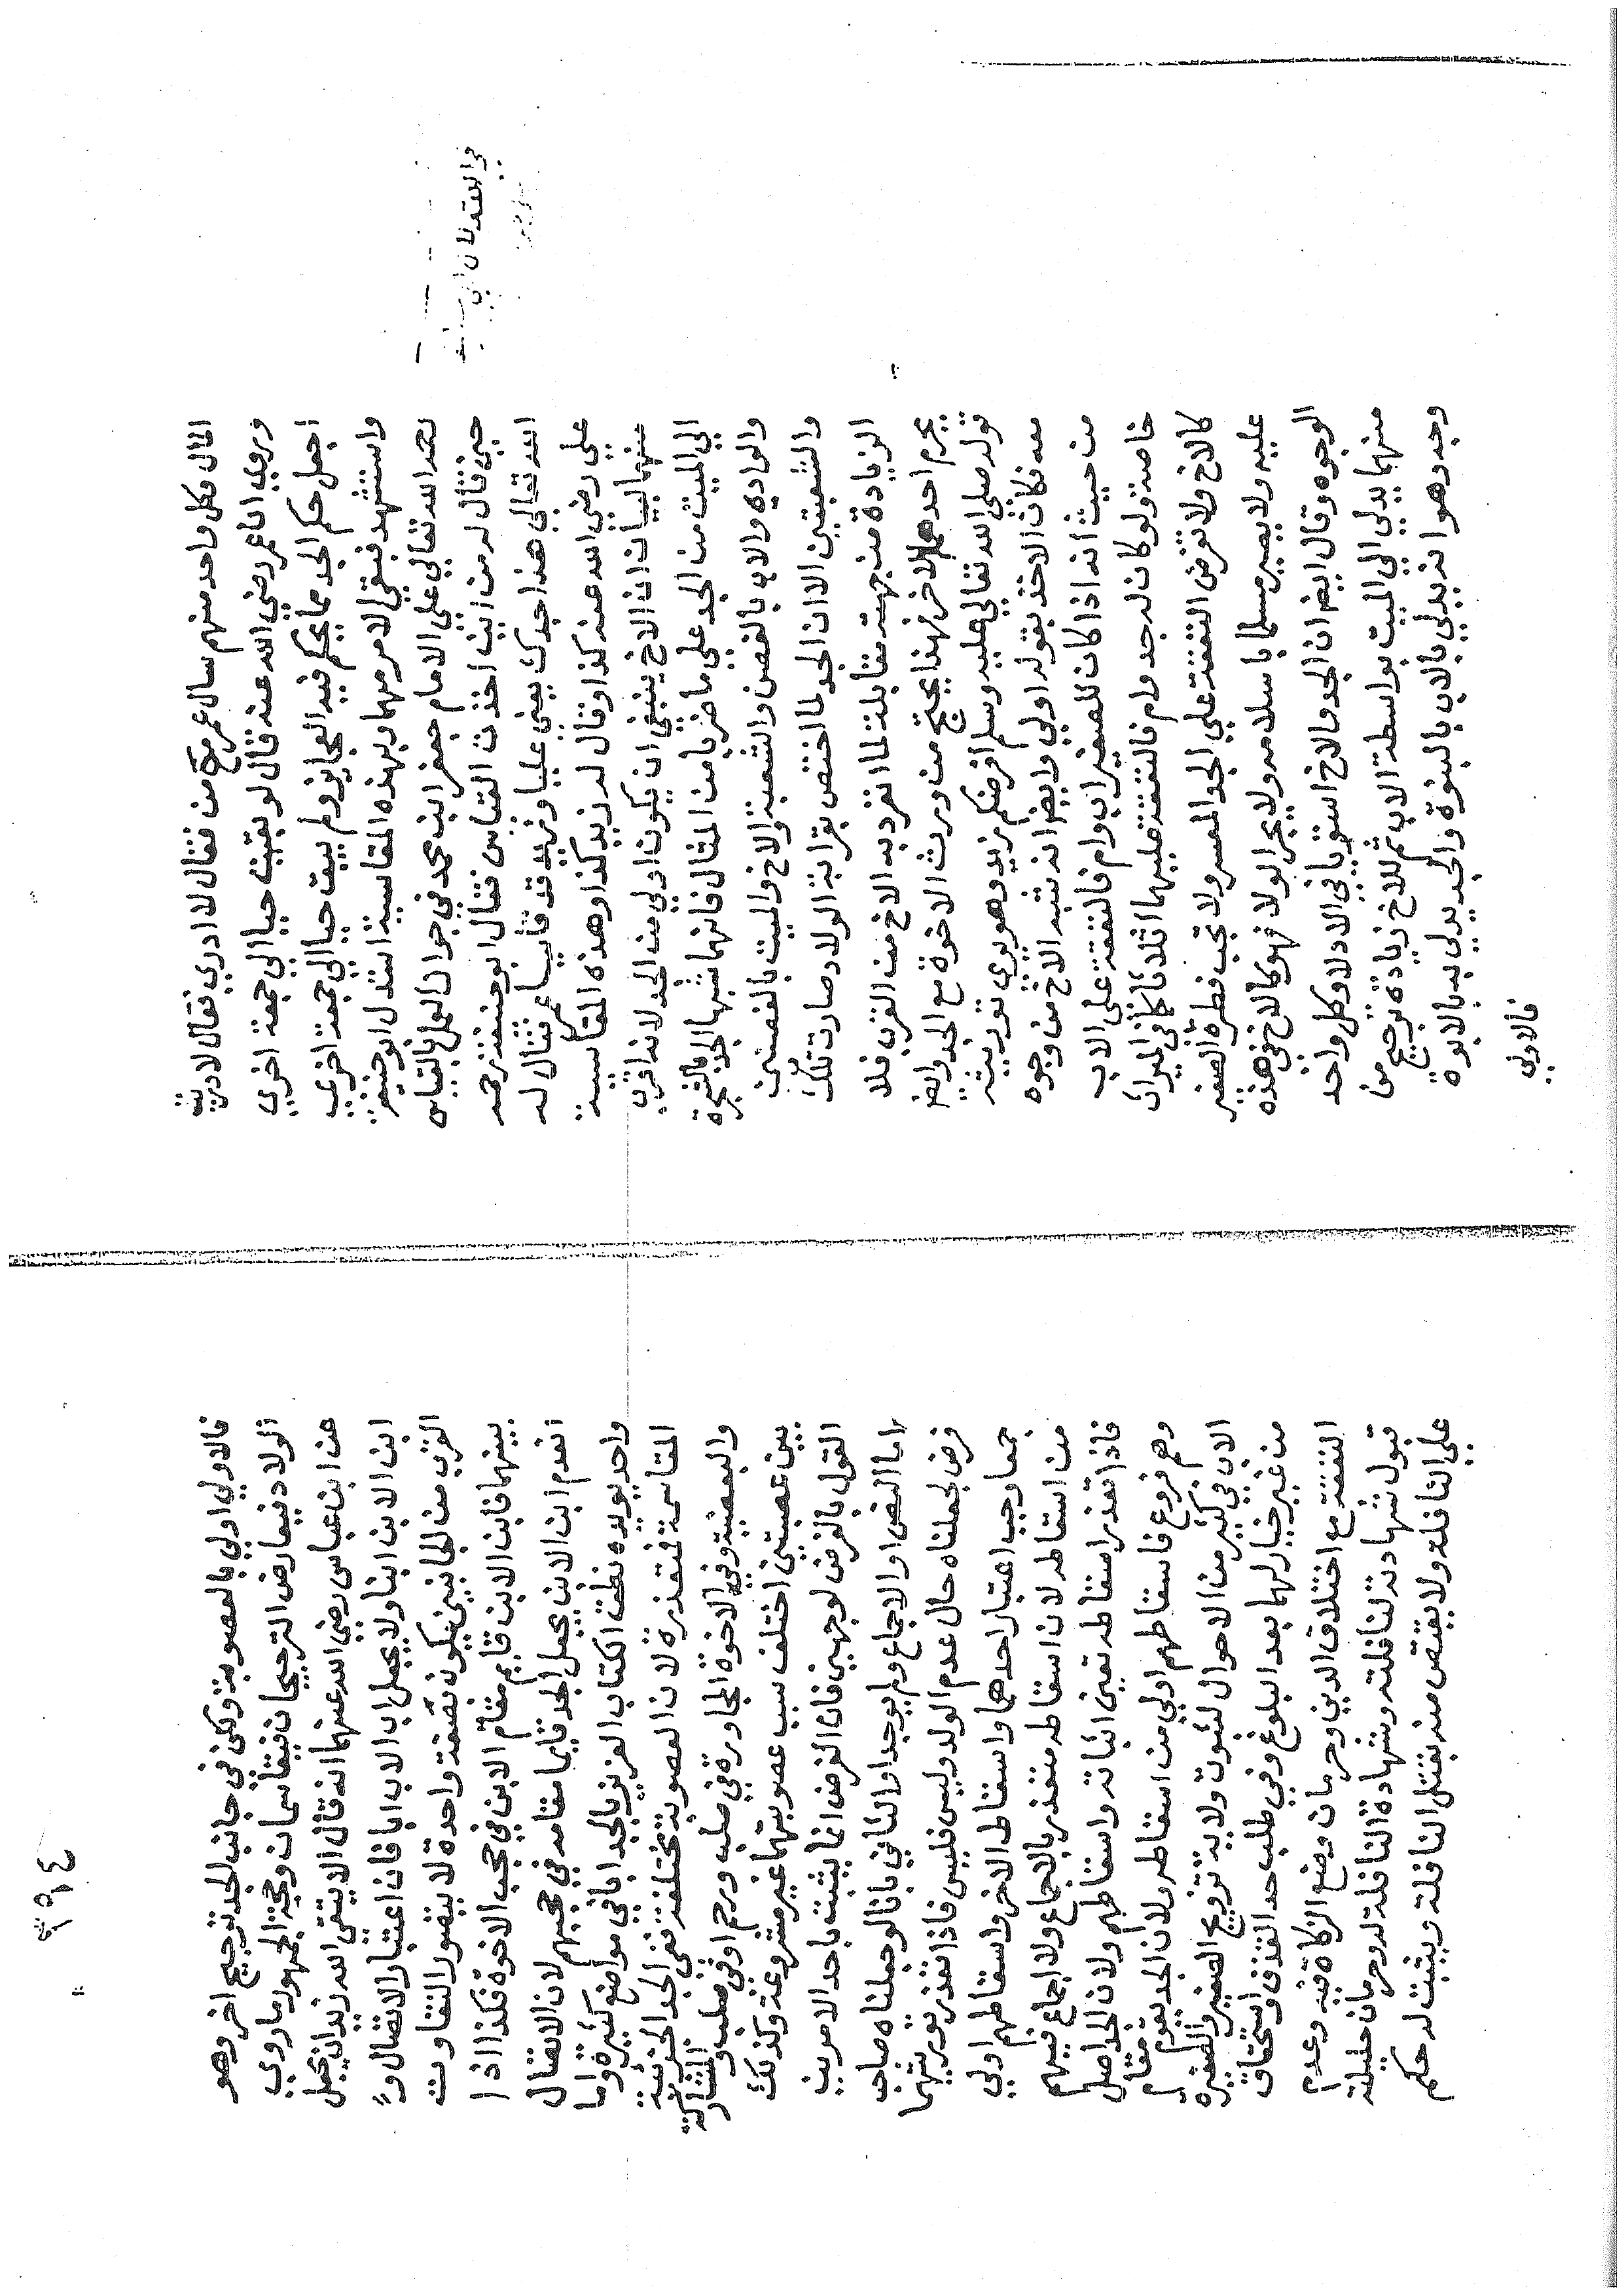 المال وكل واحد منهم سال عمر مع من فقال لا ادري فقال لا دريت
وروي ان عمر رضي الله عنه قال لو بقيت حيا الي جمعة اخري
اجعل حكم الجد مما يحكم فيه العجايز ولم يبق حيا الي جمعة اخري
واستشهد فبقي الامر مهما وبهذه المقاسية استدل ابو حنيفة
رحمه الله تعالي علي الامام جعفر ابن محمد في جواز العمل بالقياس
حين قال له من اين اخذت القياس فقال ابو حنيفة رحمه
الله تعالي هذا جدك يعني عليا وزيد قد قايسا عمر فقال له
علي رضي الله عنه كذا وقال له زيد كذا وهذه المقاسية
منهما لبيان ان الاخ ينبغي ان يكون اولي من الجد لانه اقرب
الي الميت من الجد علي ما ضربا من المثال فانهما شبها الجد بالشجرة
والوادي والاب بالغصن والشعبة والاخ والميت بالغصنين
والشعبتين الا ان الجد لما اختص بقرابة الولاد صارت تلك
الزيادة من جهته مقابلة لما انفرد به الاخ من القرب فلا
يحرم احدهما بالاخر فهذا يحتج من ورث الاخوة مع الجد وايضا
قوله صلي الله تعالي عليه وسلم افرضكم زيد وهو يري توريثه
معه فكان الاخذ بقوله اولي وايضا انه شبه الاخ من وجوه
من حيث انه اذا كان للصغير اب وام فالنفقة علي الاب
خاصة ولو كان له جد وام فالنفقة عليهما اثلاثا كما في الميراث
كالاخ ولا تفرض النفقة علي الجد المعسر ولا تجب فطرة الصغير
عليه ولا يصير مسلما باسلامه ولا يجر الولا فهو كالاخ في هذه
الوجوه وقال ايضا ان الجد والاخ استويا في الادلا وكل واحد
منهما يدلي الي الميت بواسطة الاب ثم للاخ زيادة ترجيح من
وجه وهو انه يدلي بالاب بالبنوة والجد يدلي به بالابوة
فالاولي
فالاولي اولي بالعصوبة ولكن في جانب الجد ترجيح اخر وهو
الولاد فيعارض الترجيحان فيقاسمان وحجة الجمهور ما روي
عن ابن عباس رضي الله عنهما انه قال الا يتقي الله زيد اني يجعل
ابن الابن ابنا ولا يجعل اب الاب ابا فان اعتبار الاتصال و
القرب من الجانبين يكون بصفة واحدة لا يتصور التفاوت
بينهما فابن الابن قايم مقام الابن في حجب الاخوة فكذا اذا
انعدم ابن الابن يجعل الجد قايما مقامه في حجبهم لان الاتصال
واحد يويده نطق الكتاب العزيز بالجد ابا في مواضع كثيرة واما
المقاسمة فمتعذرة لان العصوبة مختلفة ففي الجد الجزئية
والبعضية وفي الاخوة المجاورة في صلب ورحم او في صلب والمشاركة
بين عصبتين اختلف سبب عصوبتهما غير مشروعة وكذلك
القول بالفرض لوجهين فان الفرض انما يثبت باحد الامرين
اما النص او الاجماع ولم يوجد او الثاني بانا لو جعلناه صاحب
فرض لجعلناه حال عدم الولد وليس فليس فاذا تعذر توريثهما
جمعا وجب اعتبار احدهما واسقاط الاخر واسقاطهم اولي
من اسقاطه لان اسقاطه متعذر بالاجماع ولا اجماع فيهم
فاذا تعذر اسقاطه تعين اثباته واسقاطهم ولان الجد اصل
وهم فروع فاسقاطهم اولي من اسقاطه ولان الجد يقوم مقام
الاب في كثير من الاحوال لثبوت ولاية تزويج الصغير والصغيرة
من غير خيار لهما بعد البلوغ وفي طلب حد القذف واستحقاق
النفقة مع اختلاف الدين وحرمان وضع الزكاة فيه وعدم
قبول شهادته لنافلته وشهادة النافلة له وحرمان حليلة
علي النافلة ولا يقتص منه بقتل النافلة ويثبت له حكم